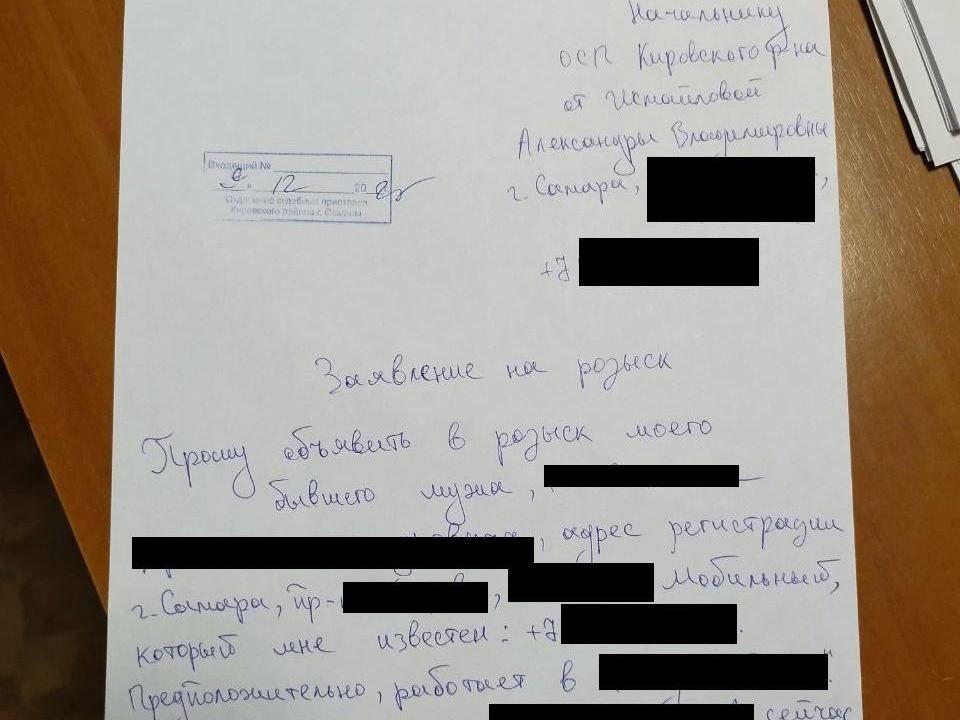 Начальнику
ОСП Кировского р-на
от Исмаиловой
Александры Владимировны
г. Самара,
+7
Входящий №
12 20
Отделение судебных приставов
Кировского района г. Самары
Заявление на розыск
Прошу объявить в розыск моего
бывшего мужа,
, адрес регистрации
г. Самара, пр-
, Мобильный,
который мне известен: +7
Предположительно, работает в
сейчас